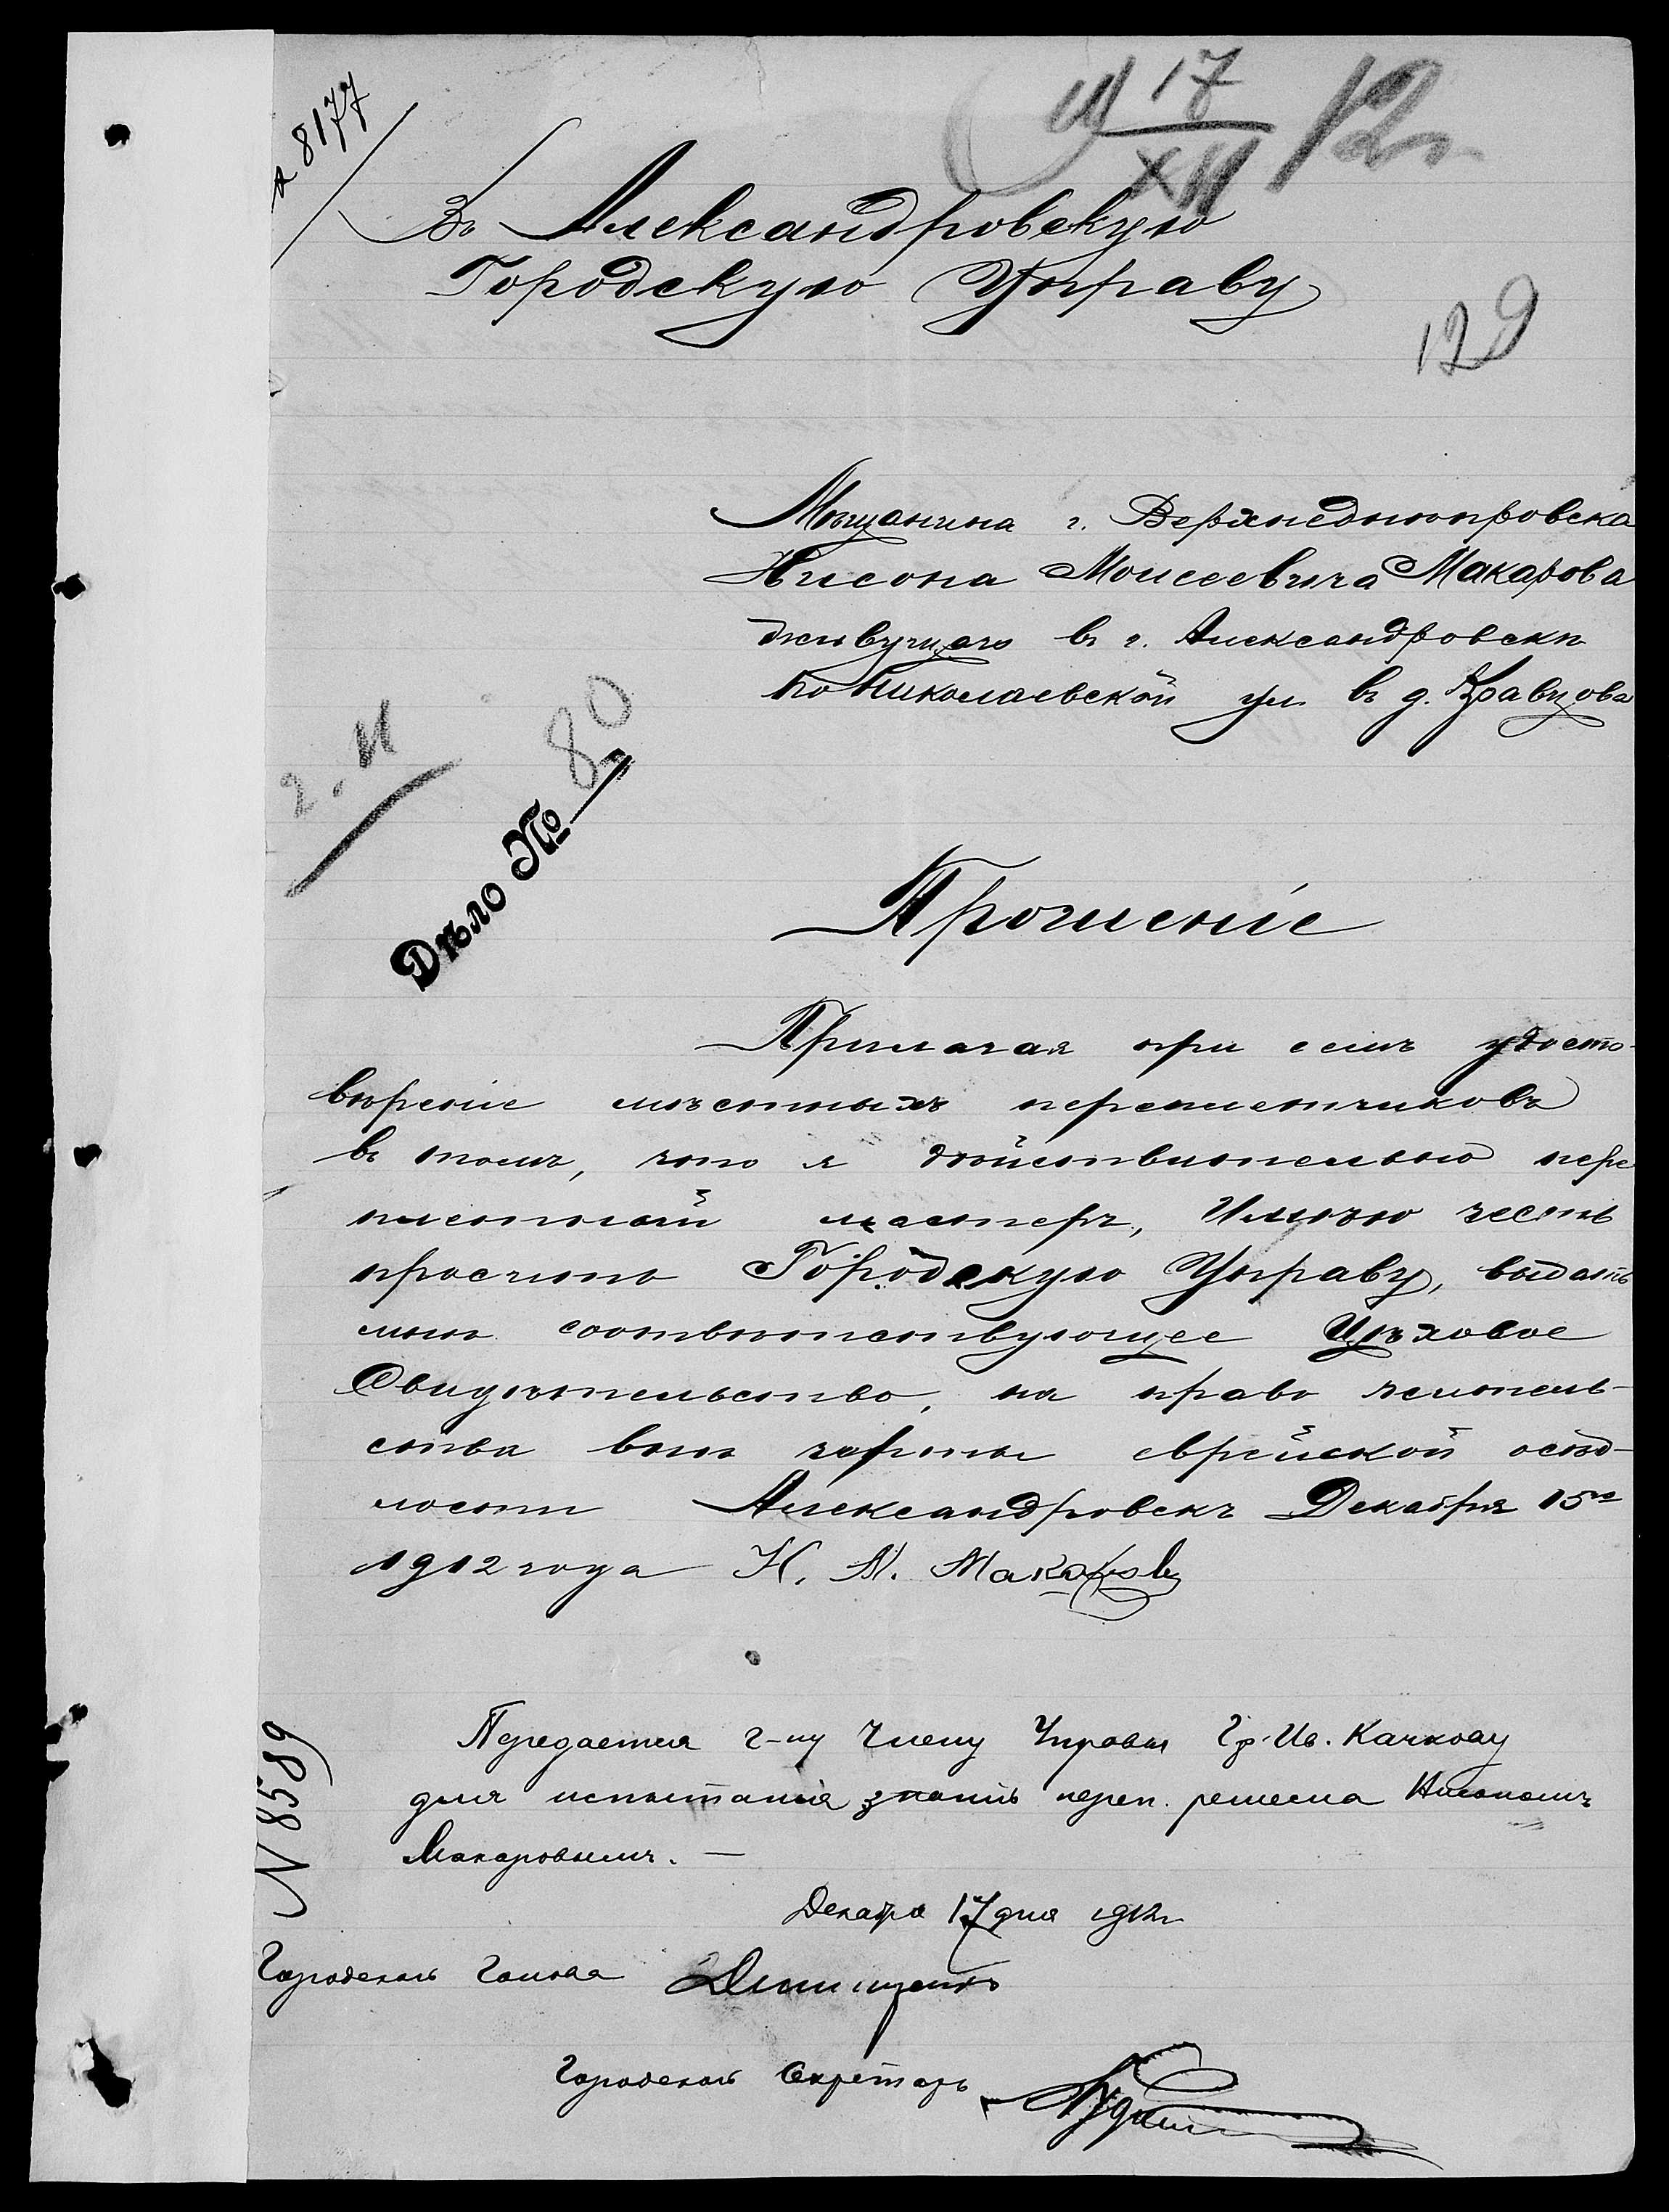 8177
17
XII 12 г.
Въ Александровскую
Городскую Управу
129
Мѣщанина г. Верхнеднѣпровска
Нисона Моисеевича Макарова
живущаго въ г. Александровскѣ
по Николаевской ул. въ д. Кравцова
2. II
Дѣло № 80
Прошеніе
Прилагая при семъ удосто-
вѣреніе мѣстныхъ переплетчиковъ
въ томъ, что я дѣйствительно пере
плетный мастеръ, Имѣю честь
просить Городскую Управу, выдать
мнѣ соотвѣтствующее Цѣховое
Свидѣтельство, на право житель-
ства внѣ черты еврейской осѣд-
лости Александровскъ Декабря 15го
1912 года Н. М. Макаровъ
Передается г-ну Члену Управы Гр. Ив. Качкову
для испытанія знанія переп. ремесла Нисономъ
Макаровымъ. —
Декабря 17 дня 1912 г.
N 8589
Городской Голова
Городской Секретарь